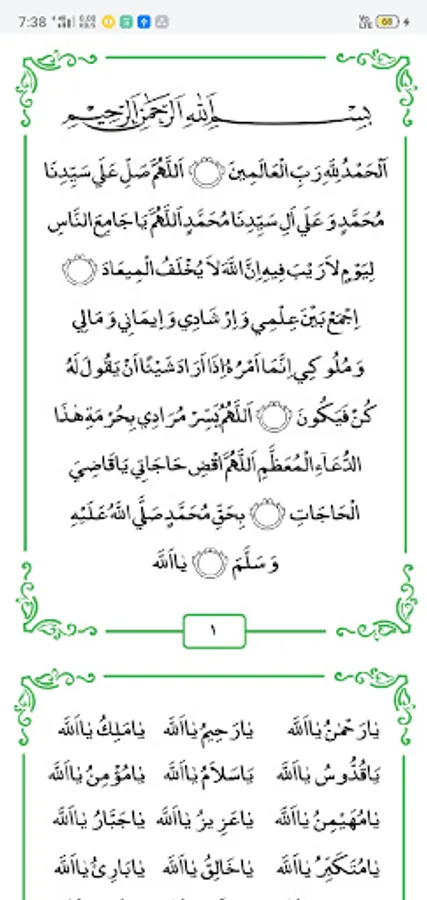 7:38
60
بِسْــــــمِ اللهِ الرَّحْمٰنِ الرَّحِيْمِ
اَلْحَمْدُ لِلّٰهِ رَبِّ الْعَالَمِيْنَ ۝ اَللّٰهُمَّ صَلِّ عَلَي سَيِّدِنَا
مُحَمَّدٍ وَعَلَي اَلِ سَيِّدِنَا مُحَمَّدٍ اَللّٰهُمَّ يَا جَامِعَ النَّاسِ
لِيَوْمٍ لَارَيْبَ فِيهِ اِنَّ اللّٰهَ لَا يُخْلَفُ الْمِيعَادَ ۝
اِجْمَعْ بَيْنَ عِلْمِي وَاِرْشَادِي وَاِيمَانِي وَمَالِي
وَمُلُوكِي اِنَّمَا اَمْرُهُ اِذَا اَرَادَ شَيْئًا اَنْ يَقُولَ لَهُ
كُنْ فَيَكُونَ ۝ اَللّٰهُمَّ يَسِّرْ مُرَادِي بِحُرْمَةِ هٰذَا
الدُّعَاءِ الْمُعَظَّمِ اَللّٰهُمَّ اقْضِ حَاجَاتِي يَا قَاضِيَ
الْحَاجَاتِ ۝ بِحَقِّ مُحَمَّدٍ صَلَّي اللّٰهُ عَلَيْهِ
وَسَلَّمَ ۝ يٰا اَللّٰه
١
يٰارَحْمٰنُ يٰا اَللّٰه يٰارَحِيمُ يٰا اَللّٰه يٰامَلِكُ يٰا اَللّٰه
يٰاقُدُّوسُ يٰا اَللّٰه يٰاسَلَامُ يٰا اَللّٰه يٰامُؤْمِنُ يٰا اَللّٰه
يٰامُهَيْمِنُ يٰا اَللّٰه يٰاعَزِيزُ يٰا اَللّٰه يٰاجَبَّارُ يٰا اَللّٰه
يٰامُتَكَبِّرُ يٰا اَللّٰه يٰاخَالِقُ يٰا اَللّٰه يٰابَارِئُ يٰا اَللّٰه